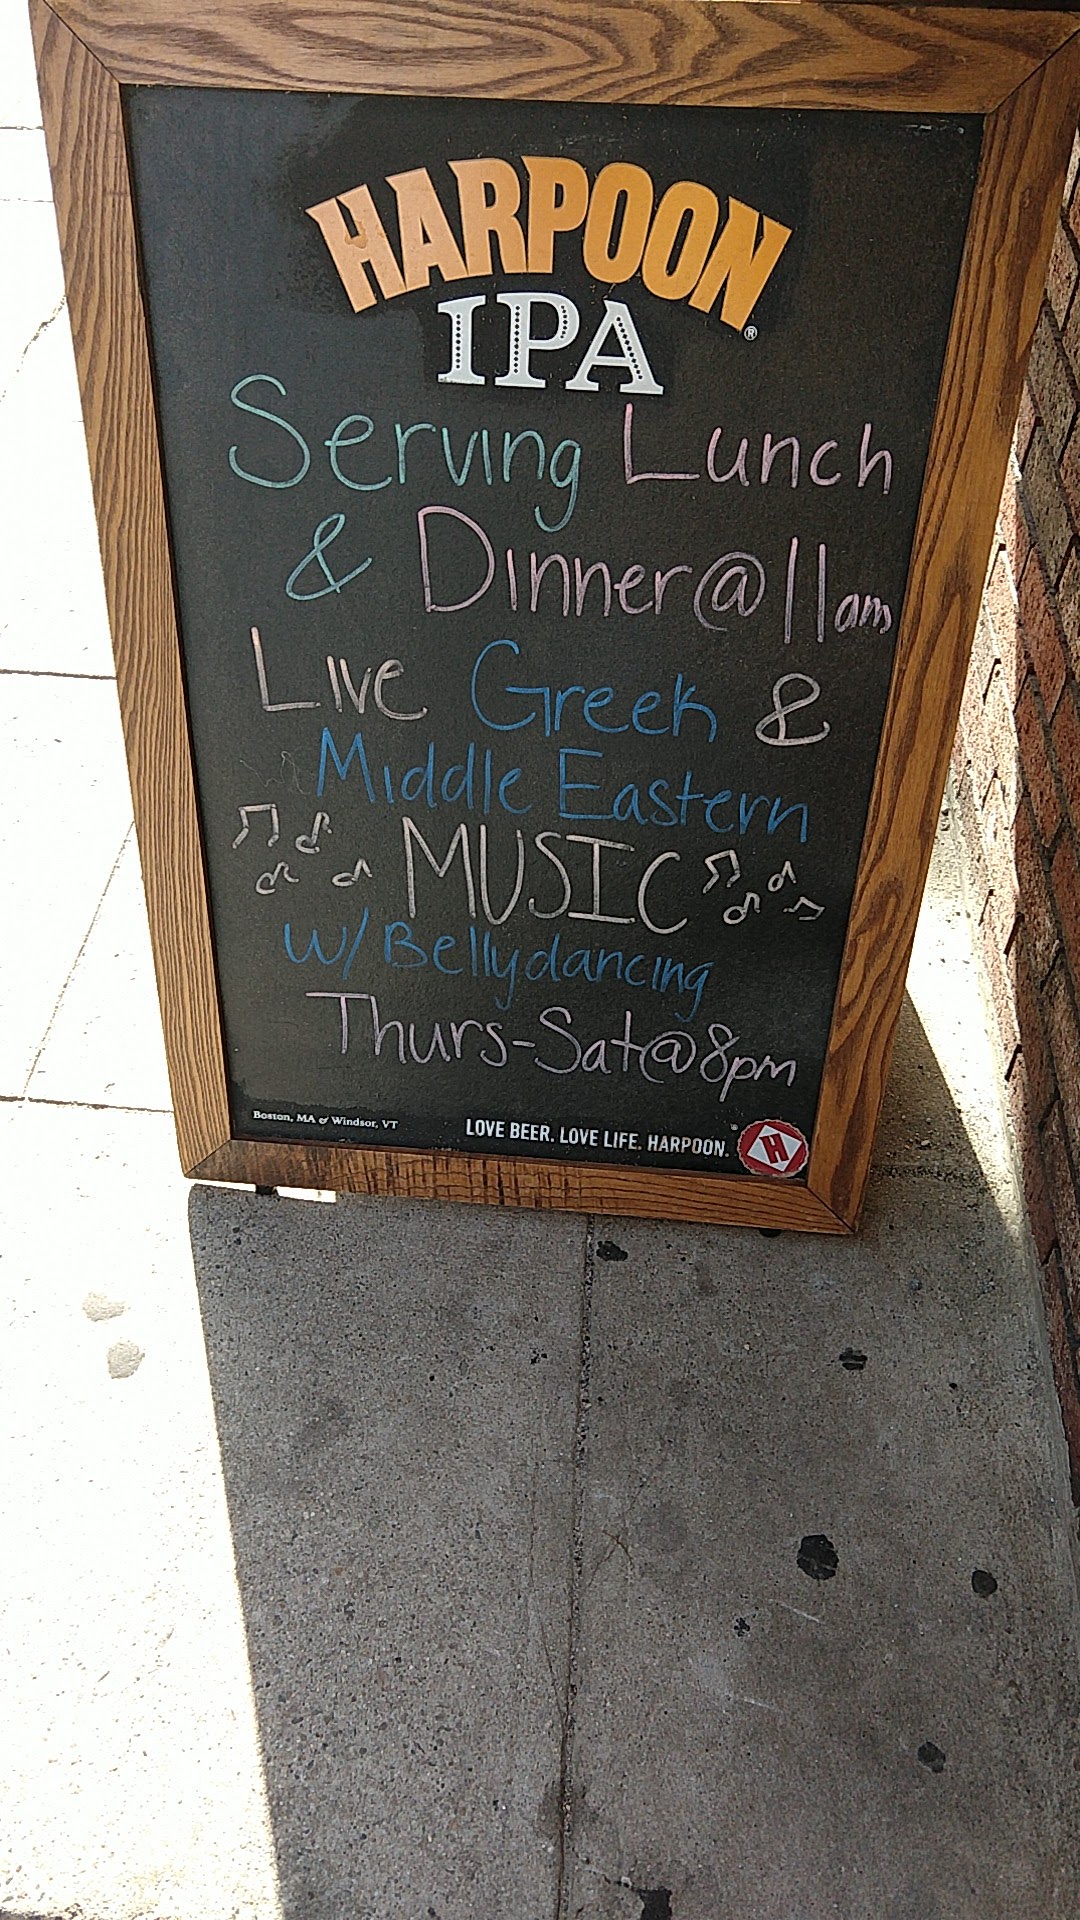 HARPOON®
IPA
Serving Lunch
& Dinner@11am
Live Greek &
Middle Eastern
MUSIC
w/ Bellydancing
Thurs-Sat@8pm
Boston, MA & Windsor, VT
LOVE BEER. LOVE LIFE. HARPOON.
H